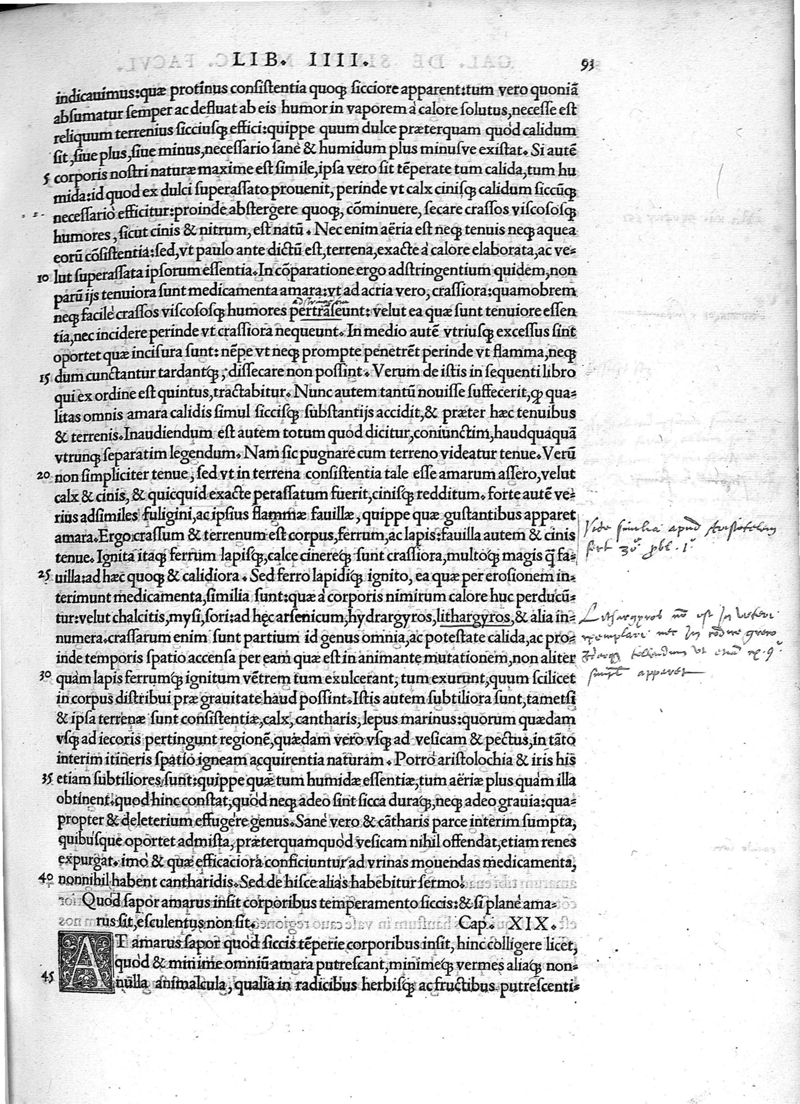 LIB. IIII. 93
indicauimus:quæ protinus consistentia quoqꝫ sicciore apparent:tum vero quoniã
absumatur semper ac defluat ab eis humor in vaporem à calore solutus,necesse est
reliquum terrenius sicciusqꝫ effici:quippe quum dulce præterquam quòd calidum
sit,siue plus,siue minus,necessario sanè & humidum plus minusve existat. Si autẽ
5 corporis nostri naturæ maxime est simile,ipsa vero sit tẽperate tum calida,tum hu
mida:id quod ex dulci superassato prouenit, perinde vt calx cinisqꝫ calidum siccũqꝫ
necessariò efficitur:proinde abstergere quoqꝫ,cõminuere, secare crassos viscososqꝫ
humores, sicut cinis & nitrum, est natũ. Nec enim aëria est neqꝫ tenuis neqꝫ aquea
eorũ cõsistentia:sed,vt paulo ante dictũ est,terrena,exacte à calore elaborata,ac ve-
10 lut superassata ipsorum essentia.In cõparatione ergo adstringentium quidem,non
parũ ijs tenuiora sunt medicamenta amara:vt ad acria vero,crassiora:quamobrem
neqꝫ facile crassos viscososqꝫ humores pertrãseunt: velut ea quæ sunt tenuiore essen
tia,nec incidere perinde vt crassiora nequeunt.In medio autẽ vtriusqꝫ excessus sint
oportet quæ incisura sunt: nẽpe vt neqꝫ prompte penetrẽt perinde vt flamma,neqꝫ
15 dum cunctantur tardantqꝫ, dissecare non possint. Verum de istis in sequenti libro
qui ex ordine est quintus,tractabitur. Nunc autem tantũ nouisse suffecerit,ꝙ qua-
litas omnis amara calidis simul siccisqꝫ substantijs accidit,& præter hæc tenuibus
& terrenis.Inaudiendum est autem totum quod dicitur,coniunctim,haudquaquã
vtrunqꝫ separatim legendum. Nam sic pugnare cum terreno videatur tenue. Verũ
20 non simpliciter tenue, sed vt in terrena consistentia tale esse amarum assero,velut
calx & cinis, & quicquid exacte perassatum fuerit,cinisqꝫ redditum. forte autẽ ve-
rius adsimiles fuligini,ac ipsius flammæ fauillæ, quippe quæ gustantibus apparet
amara. Ergo crassum & terrenum est corpus,ferrum,ac lapis:fauilla autem & cinis
tenue. Ignita itaqꝫ ferrum lapisqꝫ,calce cinereqꝫ sunt crassiora,multoqꝫ magis ꝙ̃ fa-
25 uilla:ad hæc quoqꝫ & calidiora. Sed ferro lapidiqꝫ ignito, ea quæ per erosionem in-
terimunt medicamenta,similia sunt:quæ à corporis nimirum calore huc perducũ-
tur:velut chalcitis,mysi,sori:ad hęc arsenicum,hydrargyros,lithargyros,& alia in-
numera.crassarum enim sunt partium id genus omnia,ac potestate calida,ac pro-
inde temporis spatio accensa per eam quæ est in animante mutationem,non aliter
30 quàm lapis ferrumqꝫ ignitum vẽtrem tum exulcerant, tum exurunt,quum scilicet
in corpus distribui præ grauitate haud possint.Istis autem subtiliora sunt,tametsi
& ipsa terrenæ sunt consistentiæ,calx, cantharis, lepus marinus:quorum quædam
vsqꝫ ad iecoris pertingunt regionẽ,quædam vero vsqꝫ ad vesicam & pectus,in tãto
interim itineris spatio igneam acquirentia naturam. Porrò aristolochia & iris his
35 etiam subtiliores sunt:quippe quæ tum humidæ essentiæ,tum aëriæ plus quàm illa
obtinent.quod hinc constat,quòd neqꝫ adeo sint sicca duraqꝫ,neqꝫ adeo grauia:qua-
propter & deleterium effugêre genus. Sanè vero & cãtharis parce interim sumpta,
quibusque oportet admista,præterquamquòd vesicam nihil offendat,etiam renes
expurgat. imò & quæ efficaciora conficiuntur ad vrinas mouendas medicamenta,
40 nonnihil habent cantharidis. Sed de hisce aliàs habebitur sermo.
Quòd sapor amarus insit corporibus temperamento siccis: & si plane ama-
rus sit, esculentus non sit. Cap. XIX.
AT amarus sapor quòd siccis tẽperie corporibus insit, hinc colligere licet,
quòd & minime omniũ amara putrescant,minimeqꝫ vermes aliaqꝫ non-
45 nulla animalcula, qualia in radicibus herbisqꝫ ac fructibus putrescenti-
Vide similia apud Aristotelem
Lithargyros nõ est in veteri
exemplari nec in codice græco
apparet